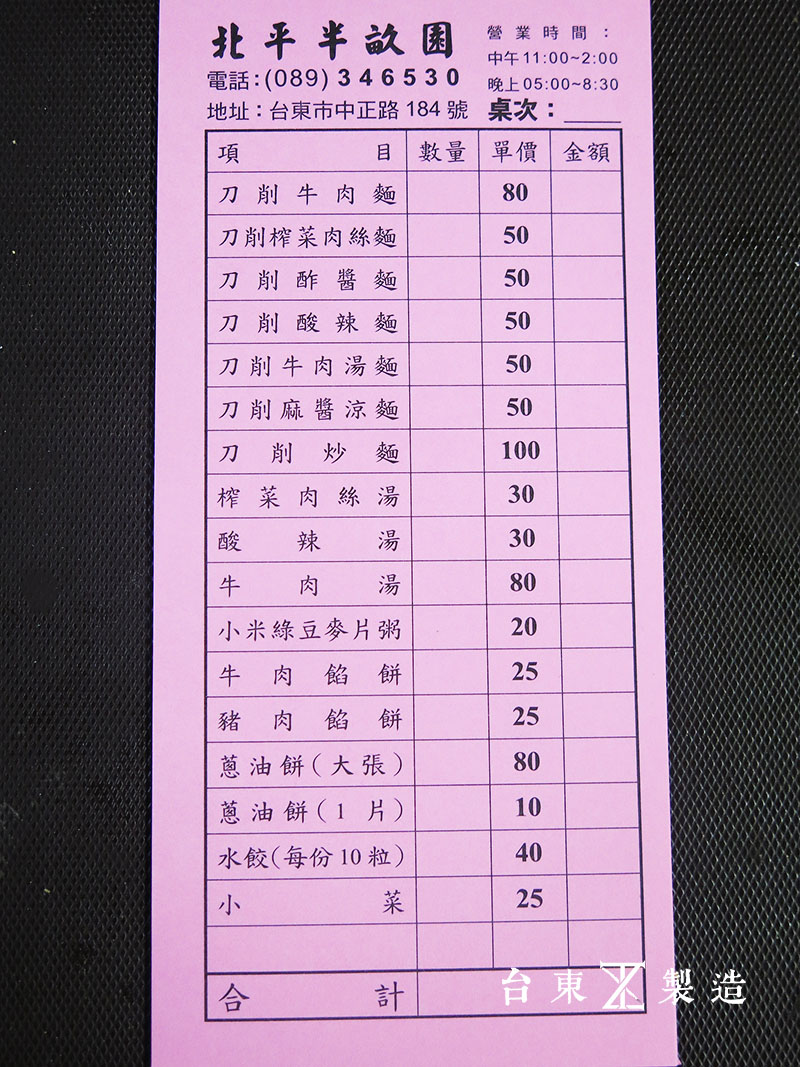 北平半畝園
電話:(089)346530
地址：台東市中正路184號
營業時間：
中午11:00~2:00
晚上05:00~8:30
桌次：____
項目 數量 單價 金額
刀削牛肉麵 80
刀削榨菜肉絲麵 50
刀削酢醬麵 50
刀削酸辣麵 50
刀削牛肉湯麵 50
刀削麻醬涼麵 50
刀削炒麵 100
榨菜肉絲湯 30
酸辣湯 30
牛肉湯 80
小米綠豆麥片粥 20
牛肉餡餅 25
豬肉餡餅 25
蔥油餅(大張) 80
蔥油餅(1片) 10
水餃(每份10粒) 40
小菜 25
合計
台東製造